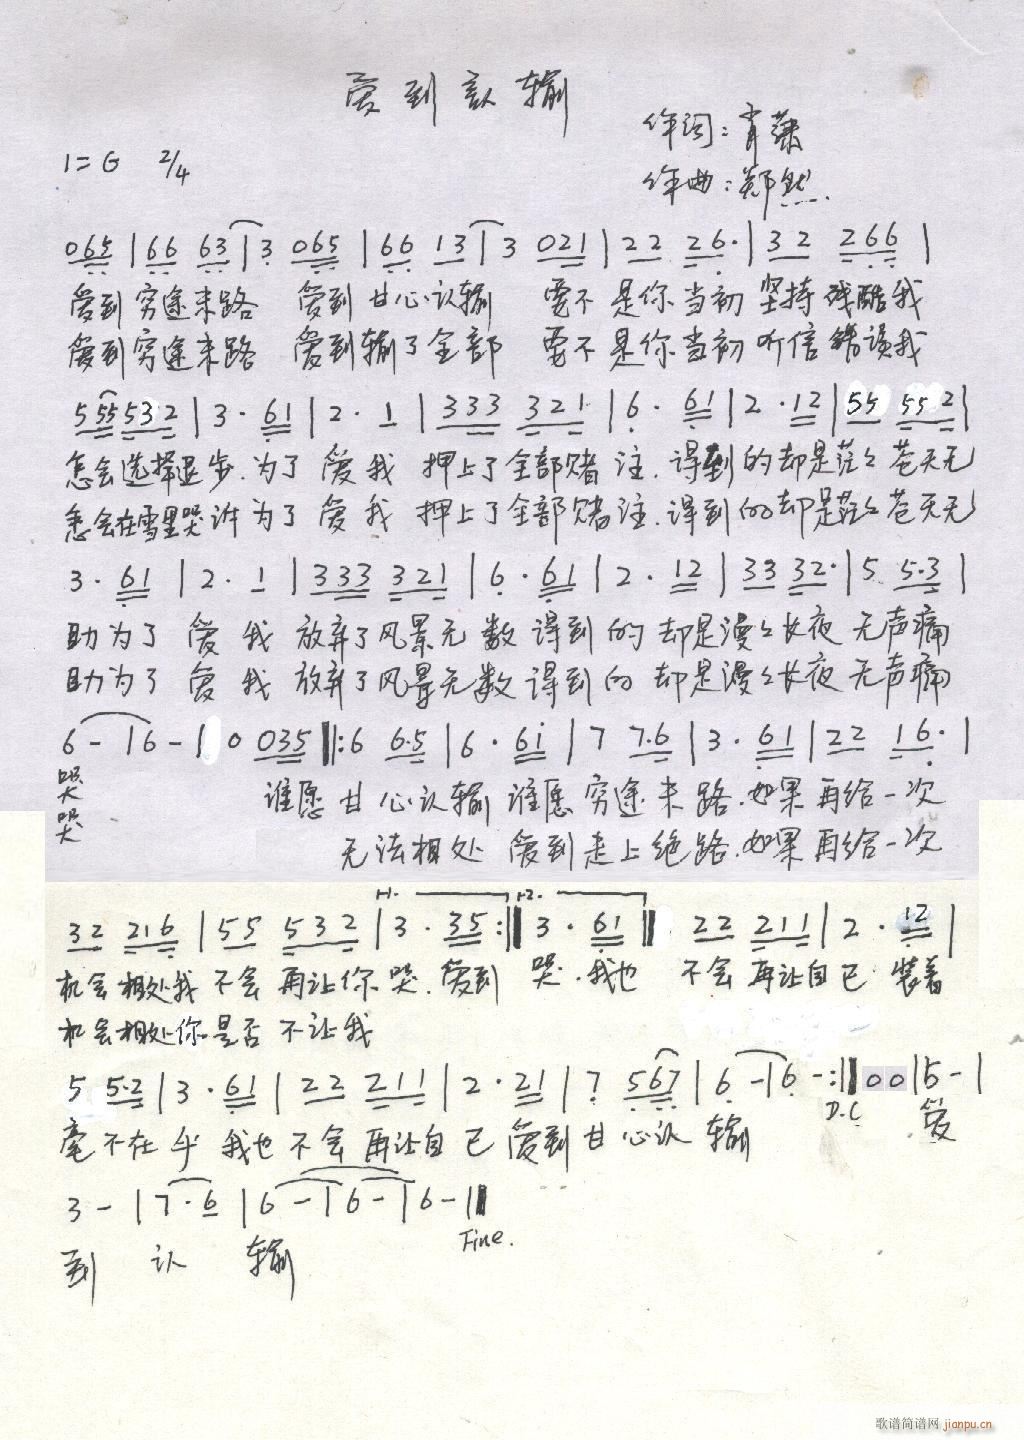 爱到认输
作词：肖
1=G 2/4
作曲：郑然
065 | 66 63 | 3 065 | 66 13 | 3 021 | 22 26· | 32 266 |
爱到穷途末路 爱到甘心认输 要不是你当初坚持残酷我
爱到穷途末路 爱到输了全部 要不是你当初听信错误我
5 55532 | 3· 61 | 2· 1 | 333 321 | 6· 61 | 2· 12 | 55 552 |
怎会选择退步.为了爱我 押上了全部赌注.得到的却是茫々苍天无
怎会在雪里哭诉为了爱我 押上了全部赌注.得到的却是茫々苍天无
3· 61 | 2· 1 | 333 321 | 6· 61 | 2· 12 | 33 32· | 5 5·3 |
助为了爱我 放弃了风景无数得到的却是漫々长夜无声痛
助为了爱我 放弃了风景无数得到的却是漫々长夜无声痛
6 - | 6 - | 0 035 ‖: 6 6·5 | 6· 6i | 7 7·6 | 3· 61 | 22 16· |
哭 谁愿甘心认输谁愿穷途末路.如果再给一次
哭 无法相处 爱到走上绝路.如果再给一次
1. 2.
32 216 | 55 532 | 3· 35 :‖ 3· 61 ‖ 22 211 | 2· 12 |
机会相处我不会再让你哭.爱到 哭.我也 不会再让自己 装着
机会相处你是否不让我
5 5·2 | 3· 61 | 22 211 | 2· 21 | 7 567 | 6 - | 6 - :‖ 00 | 5 - |
毫不在乎 我也不会再让自己爱到甘心认 输 D.C 爱
3 - | 7·6 | 6 - | 6 - | 6 - ‖
到 认 输 Fine.
歌谱简谱网 jianpu.cn